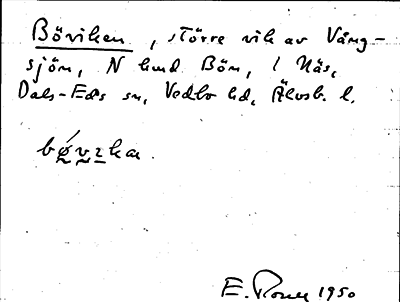 Böviken, större vik av Vång-
sjön, N hmd Bön, i Näs,
Dals-Eds sn, Vedbo hd, Älvsb. l.
bøvɪkan
E. 1950